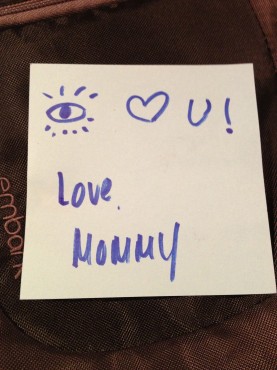 U!
Love,
MOMMY
embark